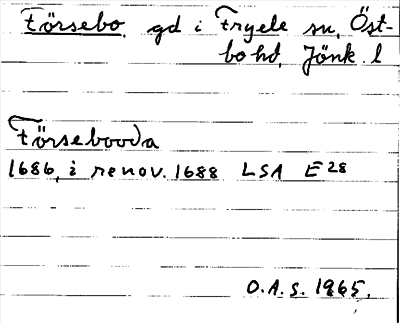 Törsebo, gd i Fryele sn, Öst-
bo hd, Jönk. l
Törsebooda
1686, i renov. 1688 LSA E 28
O.A.S. 1965.